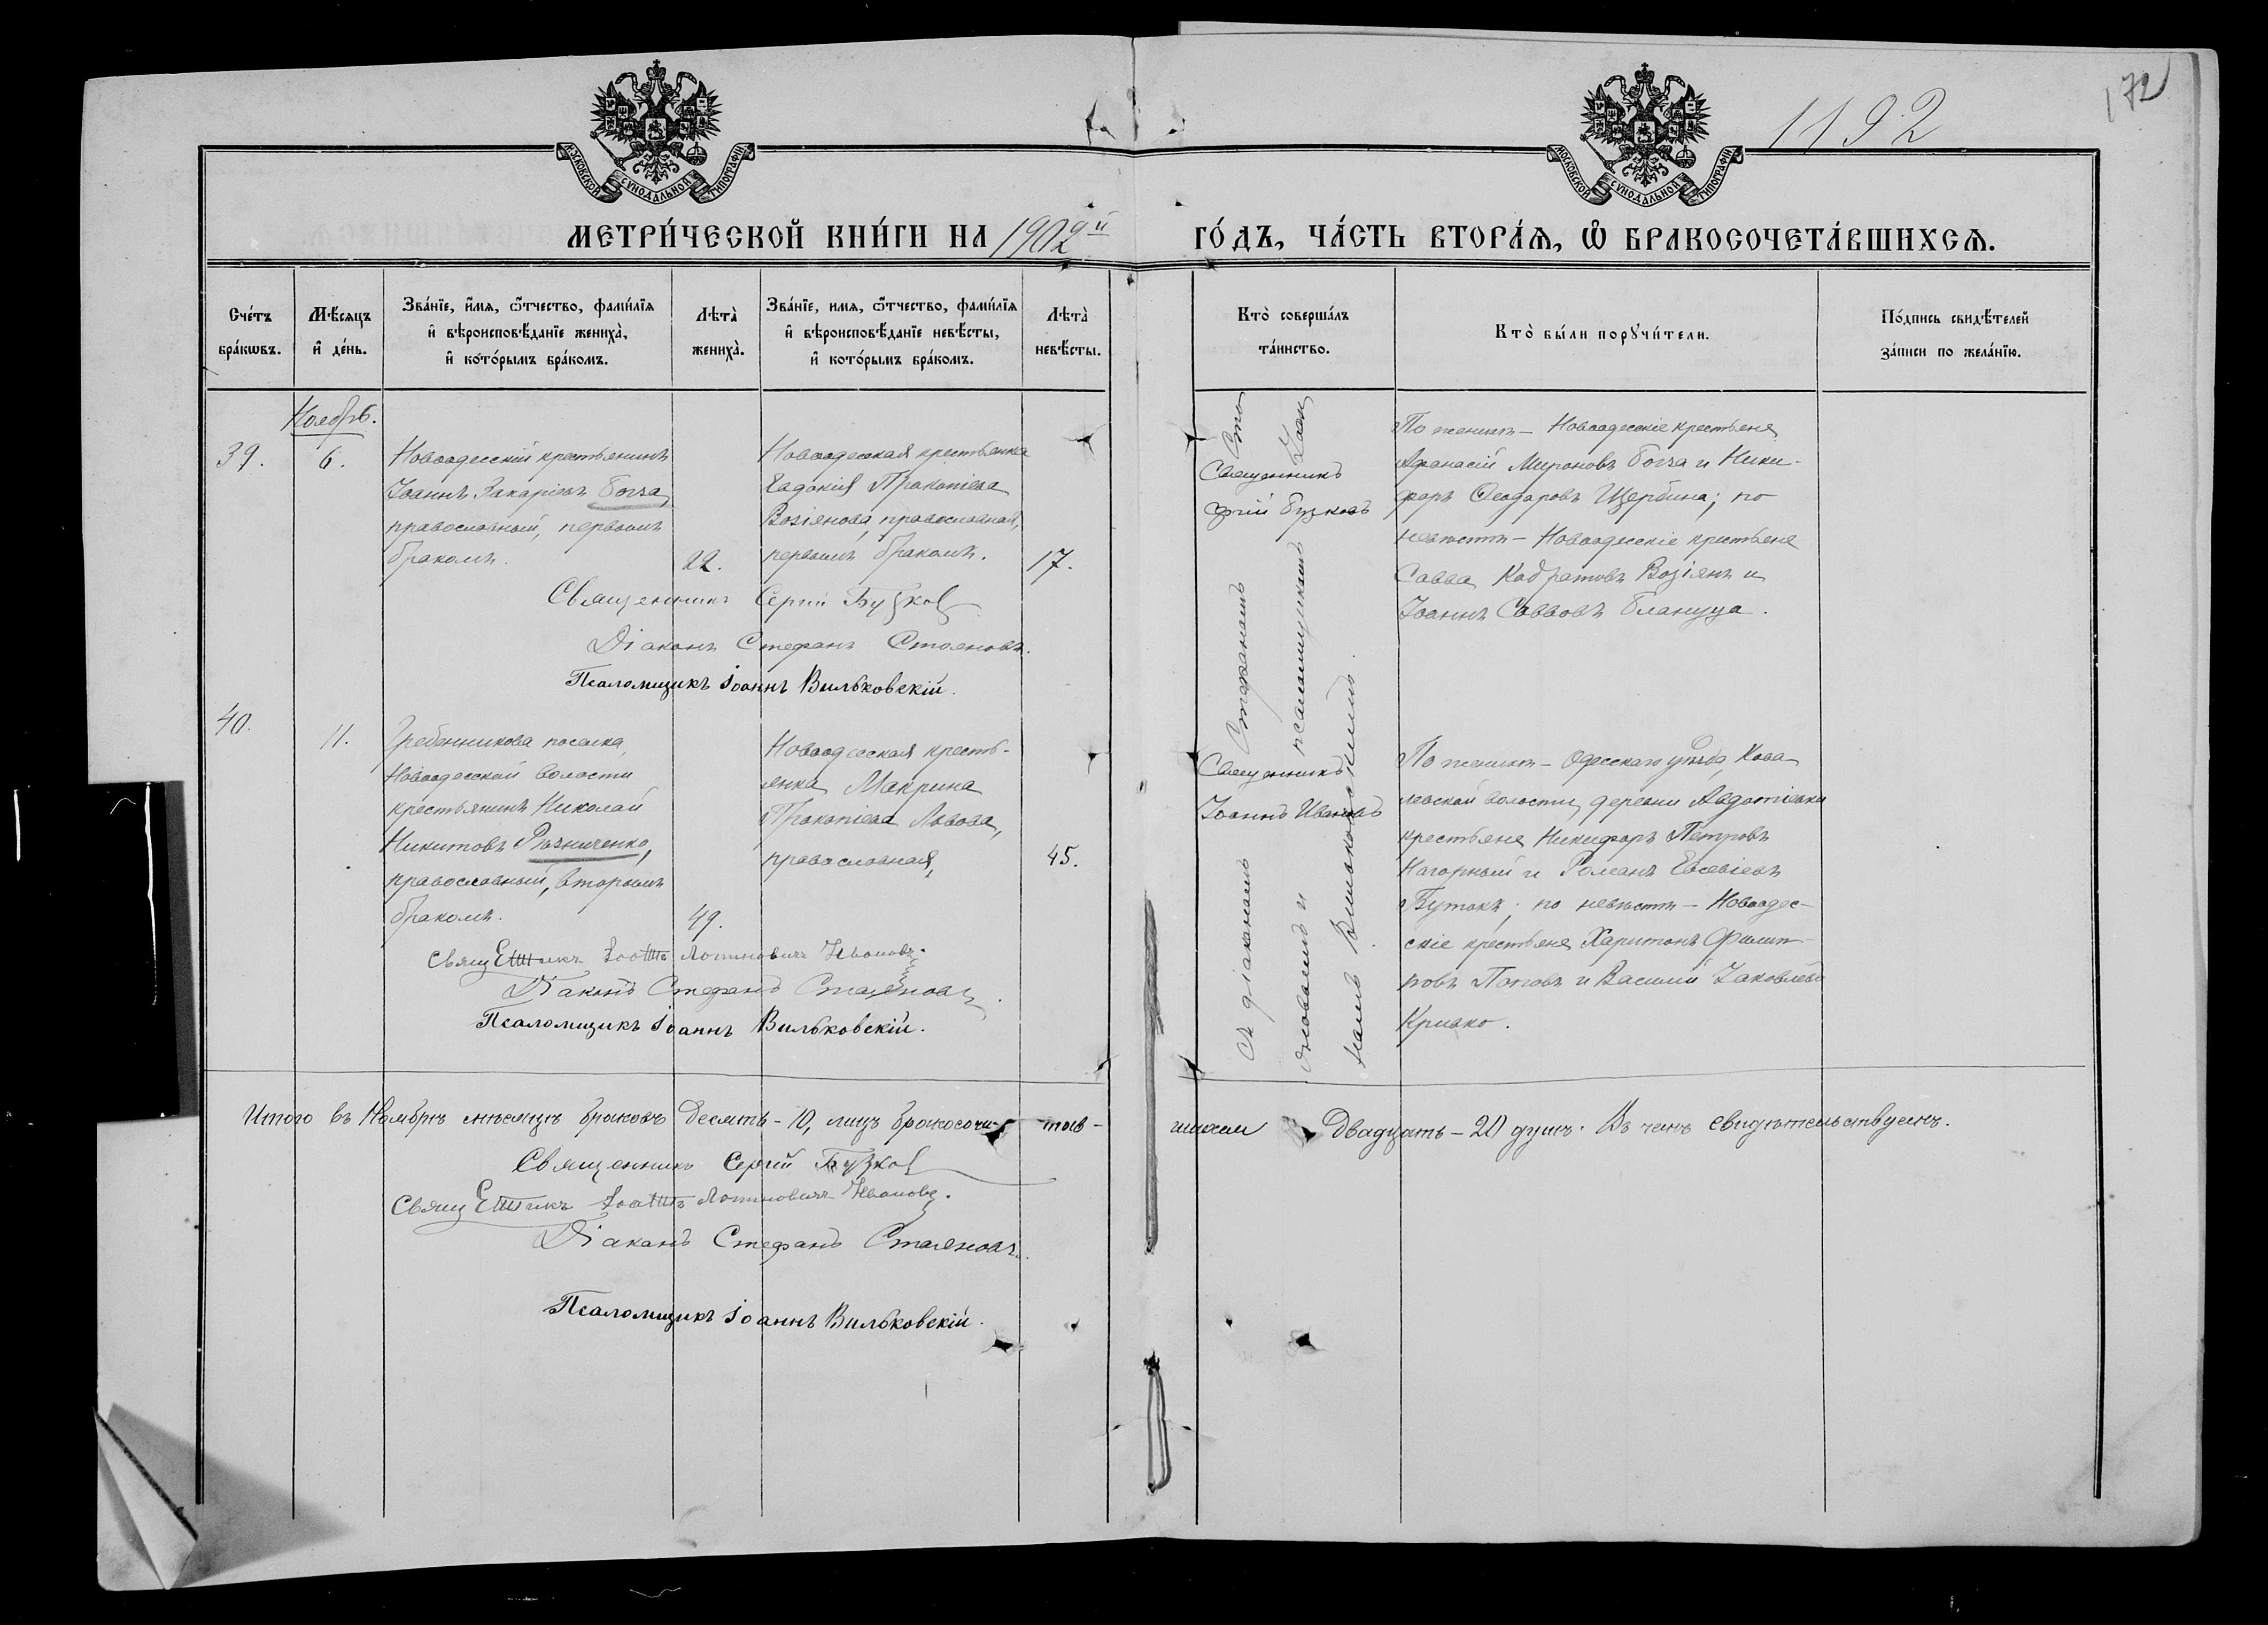 172
1192
МОСКОВСКОЙ СѴНОДАЛЬНОЙ ТИПОГРАФІИ
МОСКОВСКОЙ СѴНОДАЛЬНОЙ ТИПОГРАФІИ
МЕТРИ́ЧЕСКОЙ КНИ́ГИ НА 1902й ГО́ДЪ, ЧА́СТЬ ВТОРА́Я, Ѽ БРАКОСОЧЕТА́ВШИХСѦ.
Сче́тъ бра́кѡвъ.
Мѣ́сяцъ и҆ де́нь.
Зва́нїе, и҆́мя, ѻ҆́тчество, фами́лїя
и҆ вѣроисповѣ́данїе жениха̀,
и҆ кото́рымъ бра́комъ.
Лѣта̀ жениха̀.
Зва́нїе, имя, ѻ҆́тчество, фами́лїя
и҆ вѣроисповѣ́данїе невѣ́сты,
и҆ кото́рымъ бра́комъ.
Лѣта̀ невѣ́сты.
Кто̀ соверша́лъ
та́инство.
Кто̀ бы́ли порꙋчи́тели.
По́дпись свидѣ́телей
за́писи по жела́нїю.
Ноябрь.
39.
6.
Новоодесскій крестьянинъ
Іоаннъ Захаріевъ Богза,
православный, первымъ
бракомъ.
22.
Новоодесская крестьянка
Евдокія Прокопіева
Возіянова, православная,
первымъ бракомъ.
17.
Священникъ
Сергій Бузковъ
По женихѣ – Новоодесскіе крестьяне
Афанасій Мироновъ Богза и Ники-
форъ Ѳеодоровъ Щербина; по
невѣстѣ – Новоодесскіе крестьяне
Савва Кодратовъ Возіянъ и
Іоаннъ Саввовъ Блануца.
Священникъ Сергій Бузков
Діаконъ Стефанъ Стояновъ.
Псаломщикъ Іоаннъ Вильковскій.
40.
11.
Гребенникова поселка,
Новоодесской волости
крестьянинъ Николай
Никитовъ Рѣзниченко,
православный, вторымъ
бракомъ.
49.
Новоодесская кресть-
янка Макрина
Прокопіева Львова,
православная,
45.
Священникъ
Іоаннъ Ивановъ
По женихѣ – Одесскаго уѣзда, Кова-
левской волости, деревни Авдотіевки
крестьяне Никифоръ Петровъ
Нагорный и Романъ Евсевіевъ
Бутокъ; по невѣстѣ – Новоодес-
скіе крестьяне Харитонъ Филип-
повъ Поповъ и Василій Іаковлевъ
Кривко.
Съ діакономъ Стефаномъ Сто
яновымъ и псаломщикомъ Іоан
номъ Вильковскимъ.
Священникъ Іоаннъ Логиновичъ Ивановъ.
Діаконъ Стефанъ Стояновъ.
Псаломщикъ Іоаннъ Вильковскій.
Итого въ Ноябрѣ мѣсяцѣ браковъ десять – 10, лицъ бракосочетав-шихся двадцать – 20 душъ. Въ чемъ свидѣтельствуемъ.
Священникъ Сергій Бузков
Священникъ Іоаннъ Логиновичъ Ивановъ.
Діаконъ Стефанъ Стояновъ.
Псаломщикъ Іоаннъ Вильковскій.